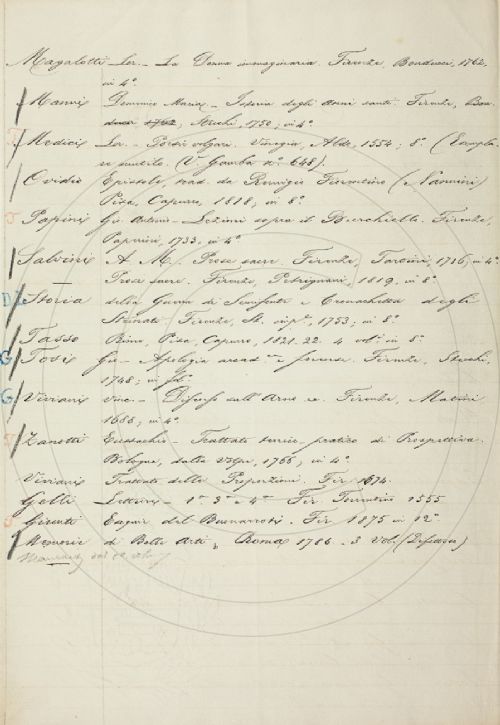 Magalotti Lor. - La Donna immaginaria. Firenze, Bonducci, 1762,
in 4°.
Manni Domenico Maria - Istoria degli Anni santi. Firenze, Bon
ducci 1762, Stecchi, 1750, in 4°.
Medici Lor. - Poesie volgari. Vinegia, Aldo, 1554; 8° (Esempla-
re mutilo. (V. Gamba n° 648).
Ovidio Epistole, trad. da Remigio Fiorentino (Nannini)
Pisa, Capurro, 1818, in 8°.
Papini Gio Antonio - Lezioni sopra il Burchiello. Firenze,
Paperini, 1733, in 4°.
Salvini A. M. Prose sacre. Firenze, Tartini, 1716, in 4°.
Prose sacre. Firenze, Petrignani, 1819, in 8°.
D Storia della Guerra di Semifonte e Cronichetta degli
Strinati. Firenze, St. imp.e, 1753; in 8°.
Tasso Rime, Pisa, Capurro, 1821.22. 4 vol. in 8°
G Tosi Gio - Apologia e forense. Firenze, Stecchi,
1748; in fol.
G Viviani Vinc. - Discorso sull'Arno ec. Firenze, Matini
1688, in 4°.
Zanotti Eustachio - Trattato teorico pratico di Prospettiva.
Bologna, dalla Volpe, 1766, in 4°.
Viviani Trattato delle Proporzioni. Fir. 1674.
Gelli Letture - 1a 2a e 4a Fir. Torrentino 1555
Esequie del Buonarroti. Fir 1875 in 12°.
Memorie di Belle Arti, Roma 1786. 3 Vol. (Difettoso)